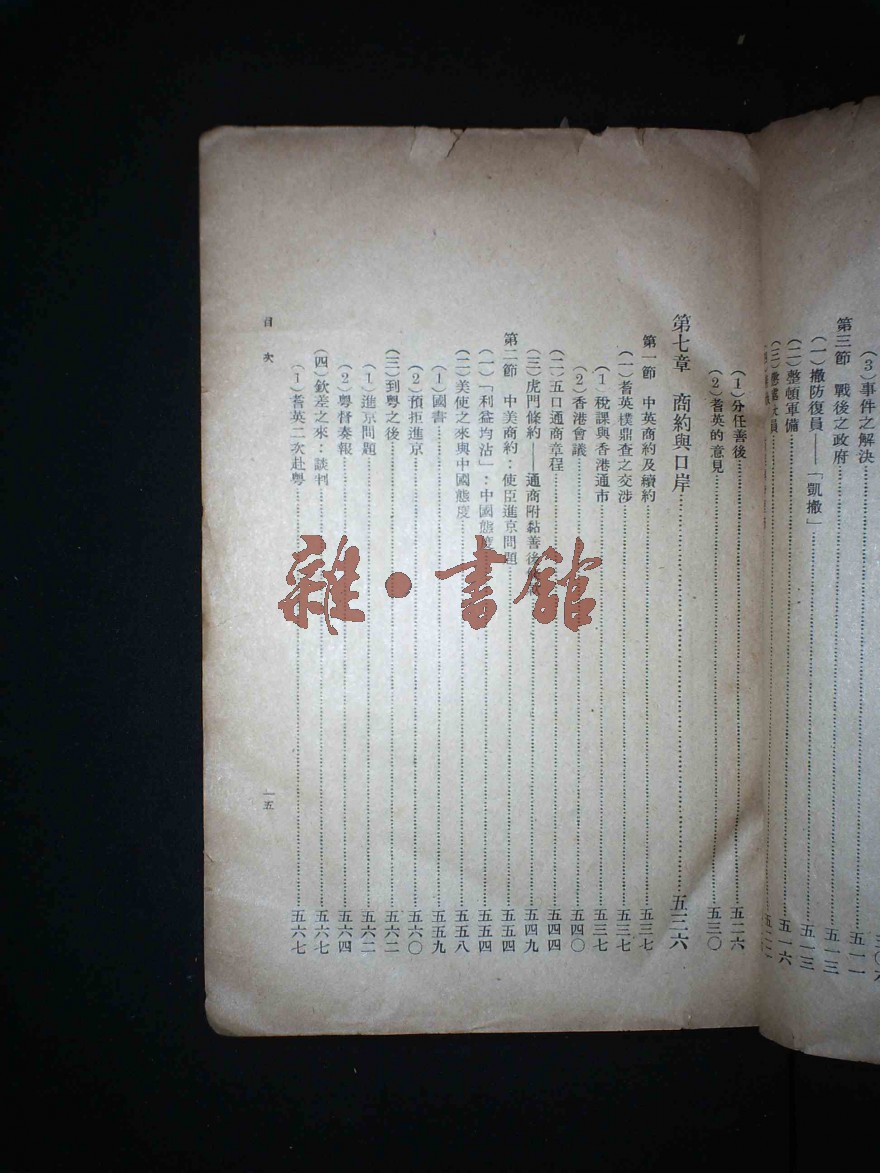 (3)事件之解決
第三節 戰後之政府……五一一
(一)撤防復員——「凱撤」……五一三
(二)整頓軍備……五一三
(三)大員……五一六
(1)分任善後……五二六
(2)耆英的意見……五三〇
第七章 商約與口岸……五三六
第一節 中英商約及續約……五三七
(一)耆英樸鼎查之交涉……五三七
(1)稅課與香港通市……五三七
(2)香港會議……五四〇
(二)五口通商章程……五四四
(三)虎門條約——通商附黏善後……五四九
第二節 中美商約:使臣進京問題……五五四
(一)「利益均沾」:中國態度……五五四
(二)美使之來與中國態度……五五八
(1)國書……五五九
(2)預拒進京……五六〇
(三)到粵之後……五六二
(1)進京問題……五六二
(2)粵督奏報……五六四
(四)欽差之來:談判……五六七
(1)耆英二次赴粵……五六七
目次
一五
雜·書館